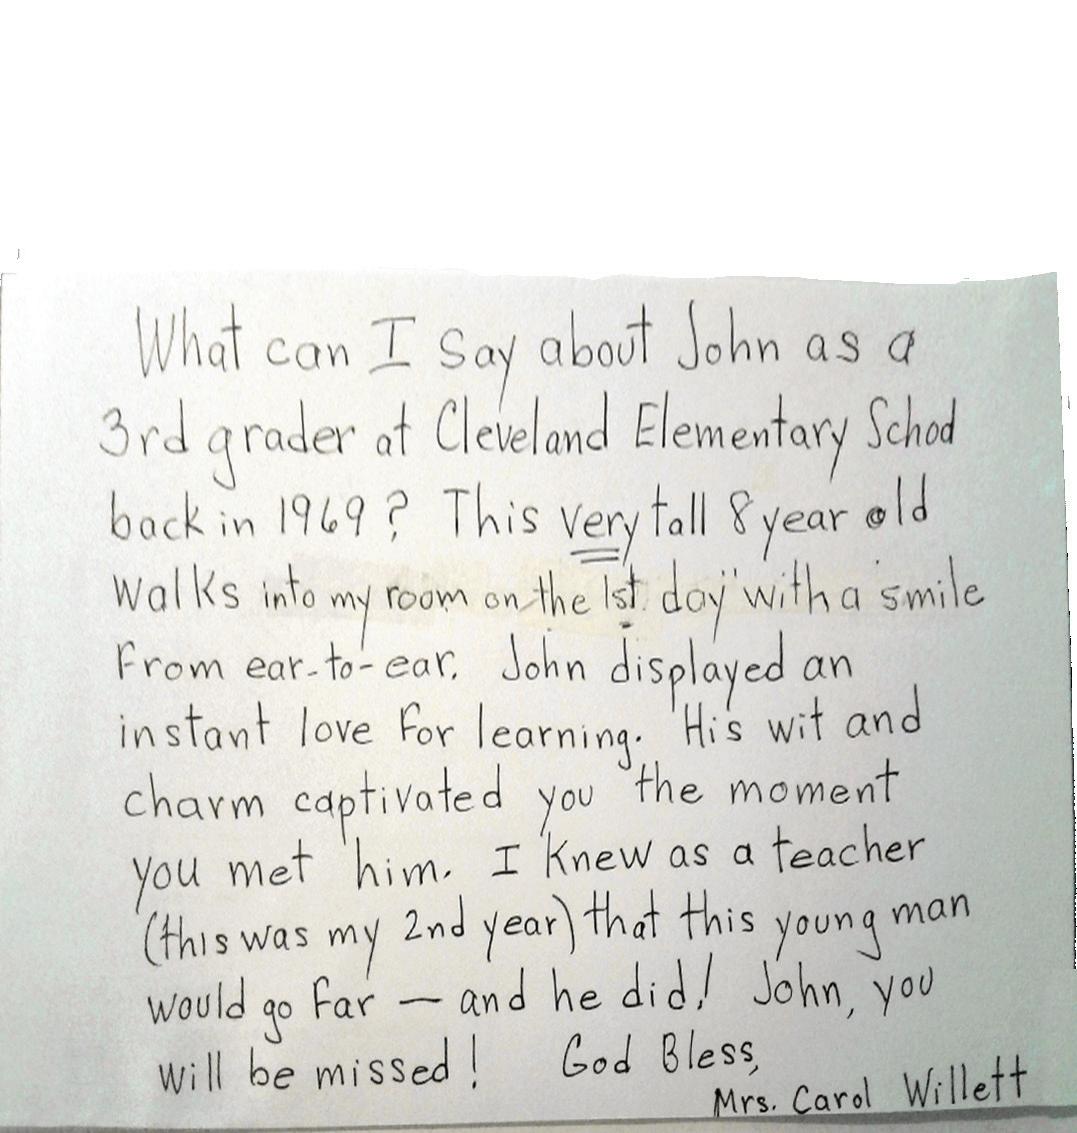 What can I say about John as a
3rd grader at Cleveland Elementary School
back in 1969? This very tall 8 year old
walks into my room on the 1st day with a smile
from ear-to-ear. John displayed an
instant love for learning. His wit and
charm captivated you the moment
you met him. I knew as a teacher
(this was my 2nd year) that this young man
would go far — and he did! John, you
will be missed! God Bless,
Mrs. Carol Willett